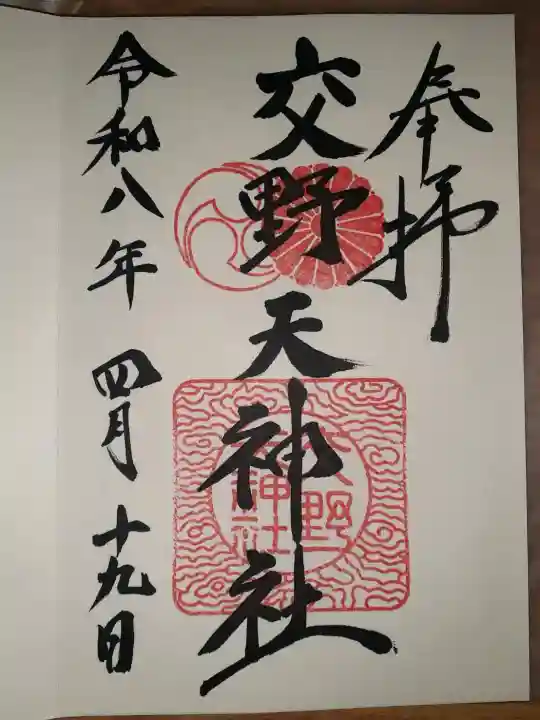 奉拝
交野天神社
令和八年 四月 十九日